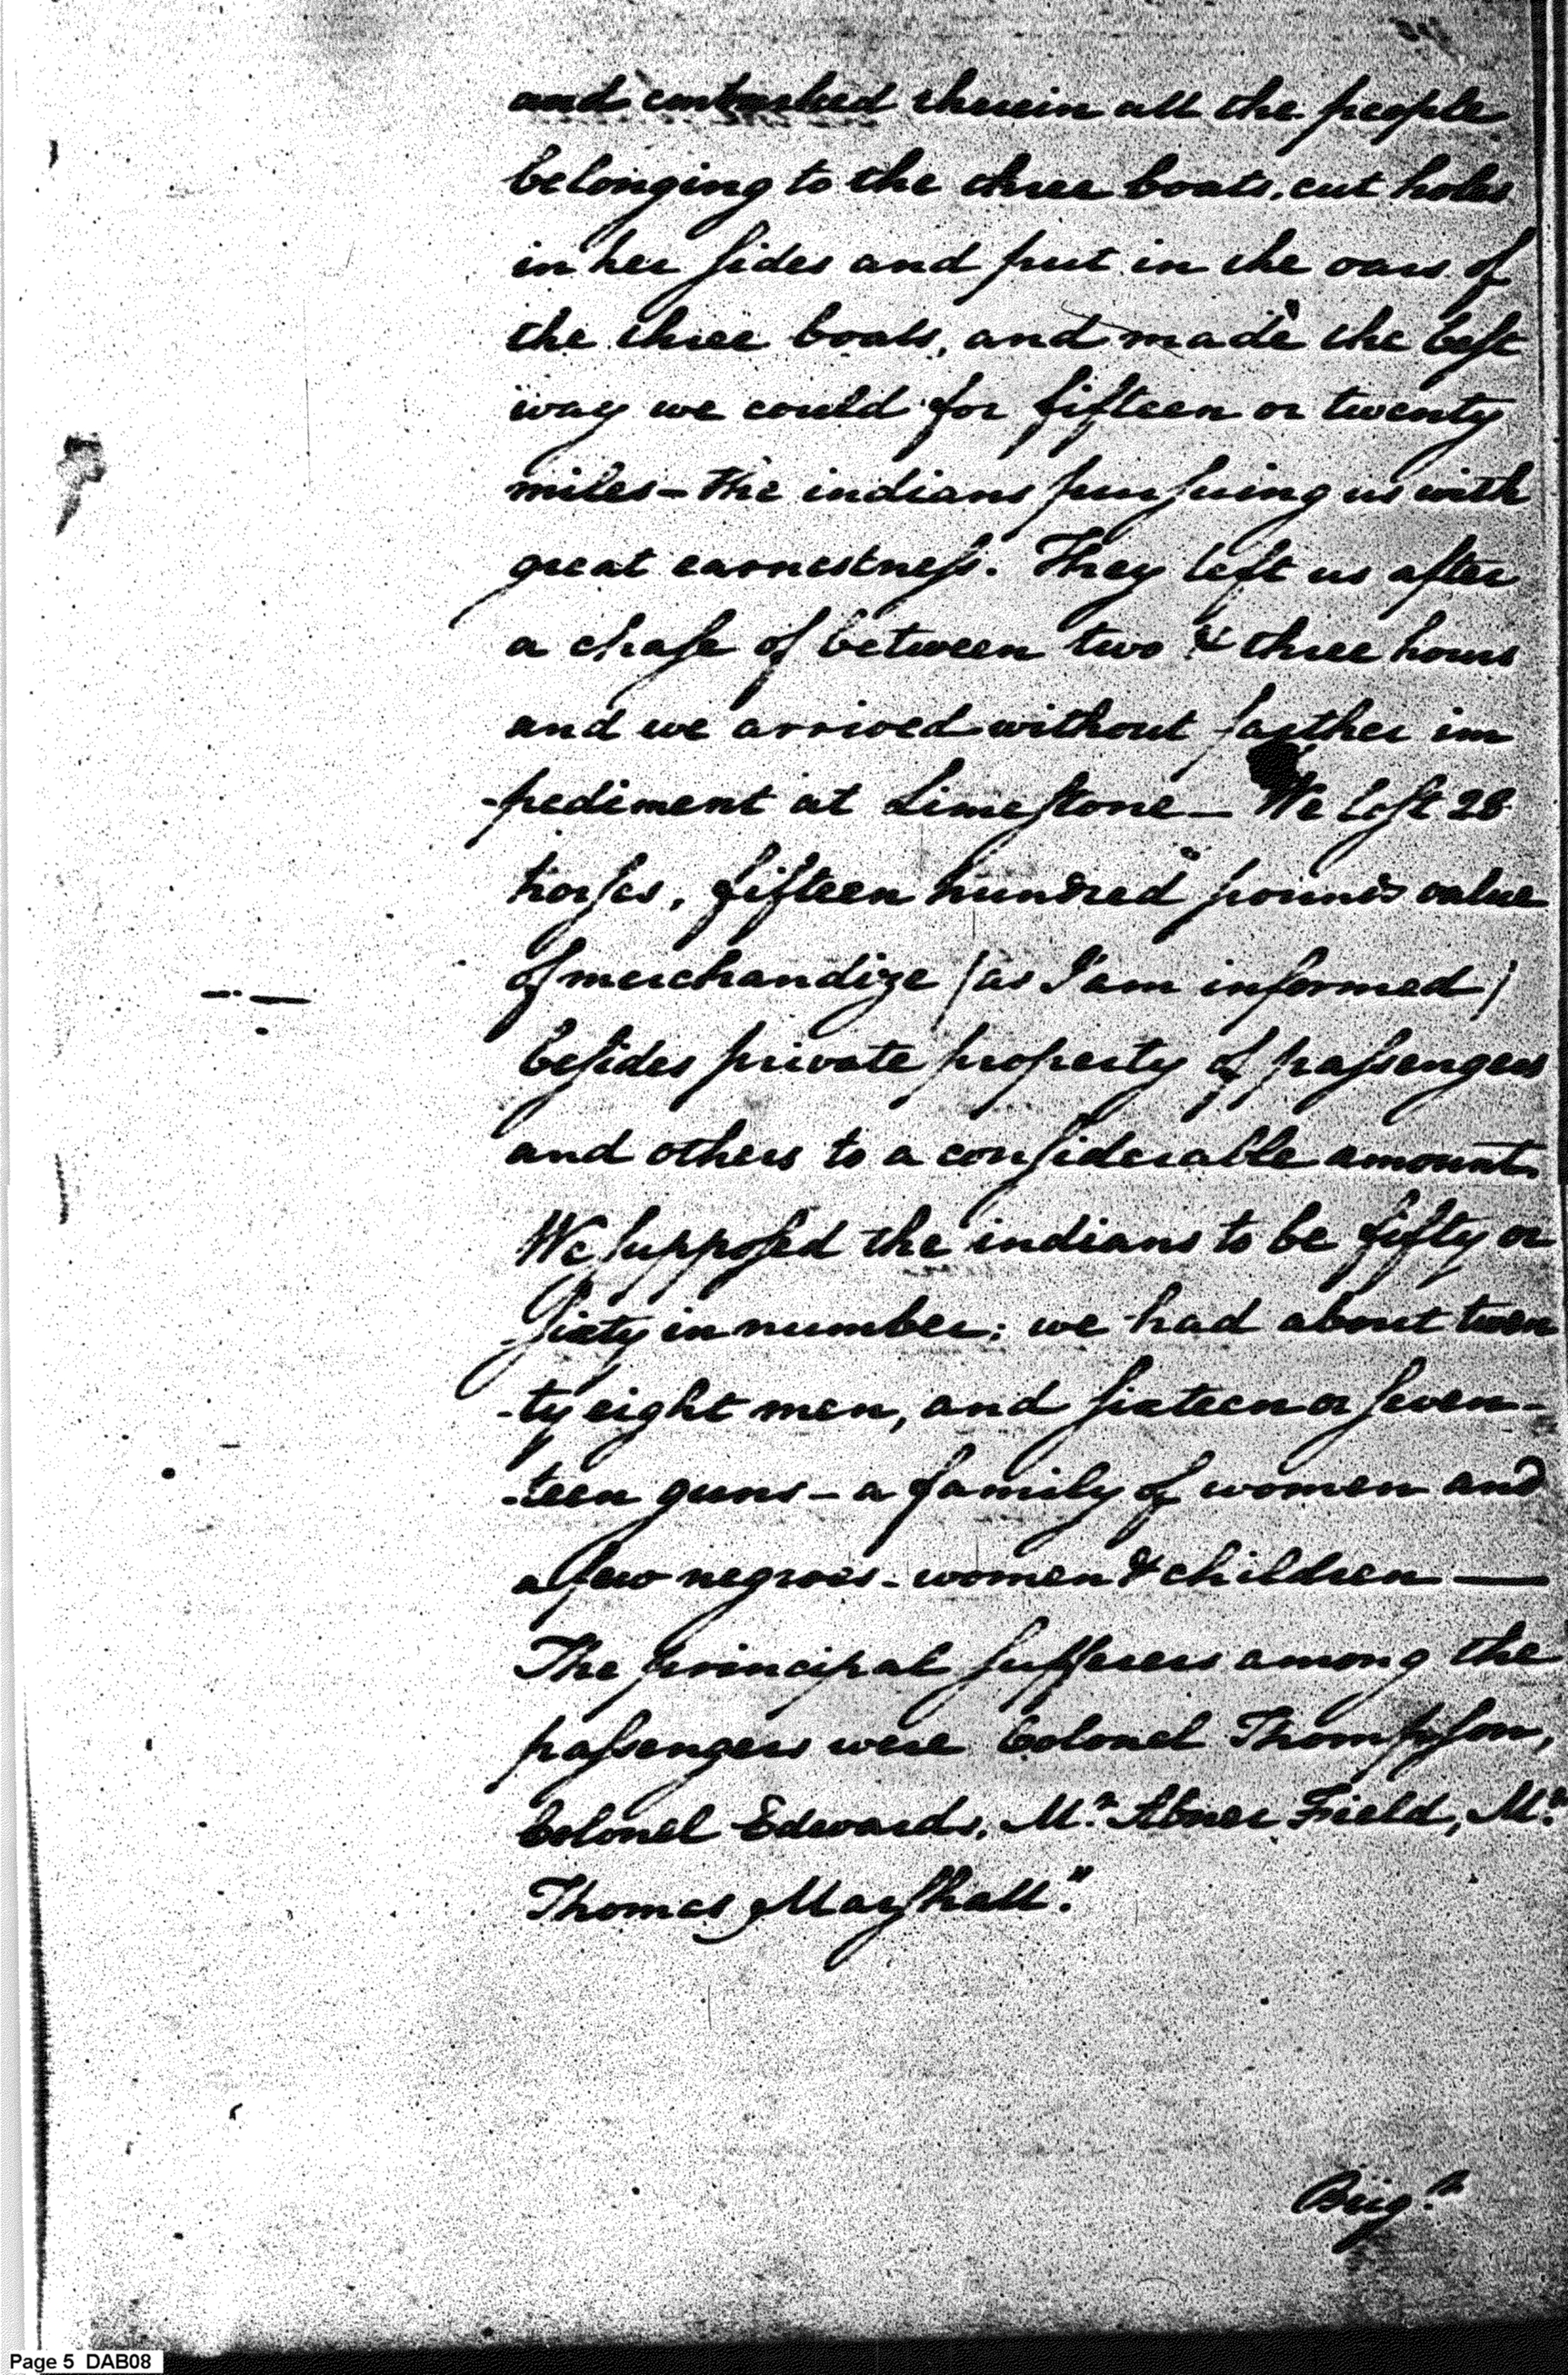 and embarked therein all the people
belonging to the three boats, cut holes
in her sides and put in the oars of
the three boats, and made the best
way we could for fifteen or twenty
miles – the indians pursuing us with
great earnestness. They left us after
a chase of between two & three hours
and we arrived without farther im
-pediment at Limestone – We lost 28
horses, fifteen hundred pounds value
of merchandize (as I am informed)
besides private property of passengers
and others to a considerable amount.
We supposed the indians to be fifty or
Sixty in number: we had about twen
-ty eight men, and sixteen or seven-
-teen guns – a family of women and
a few negroes – women & children —
The principal sufferers among the
passengers were Colonel Thompson,
Colonel Edwards, Mr. Abner Field, Mr.
Thomas Marshall."
Brigr.
Page 5 DAB08